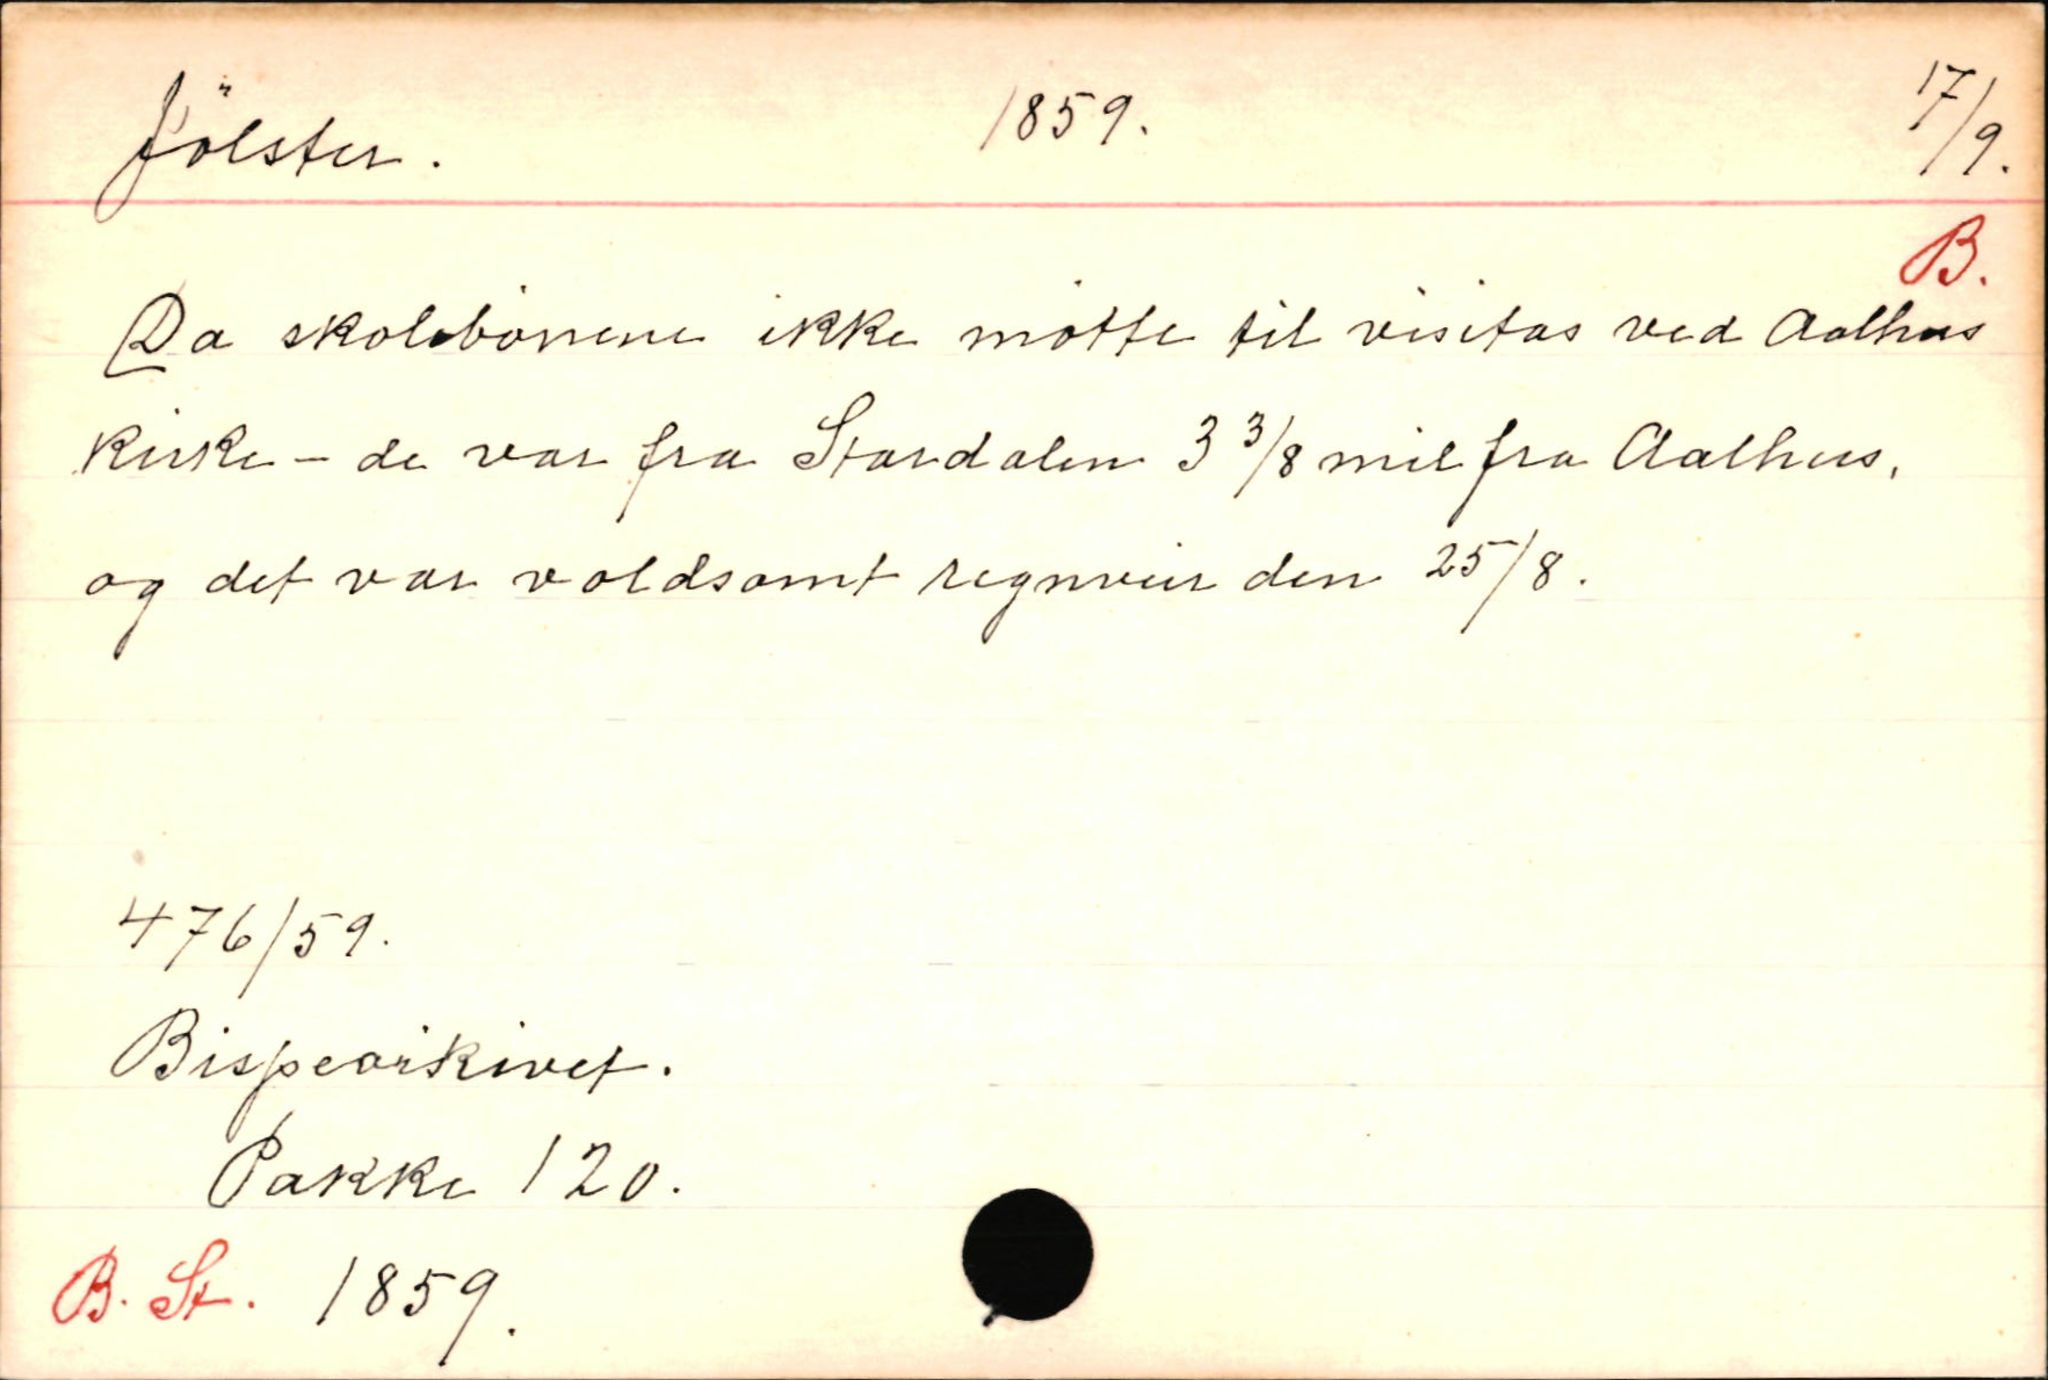 Jölster. 1859. 17/9.
B.
Da skolebörnene ikke mötte til visitas ved Aalhus
kirke - de var fra Stardalen 3 3/8 mil fra Aalhus,
og det var voldsomt regnveir den 25/8.
476/59.
Bispearkivet.
Pakke 120.
B. St. 1859.